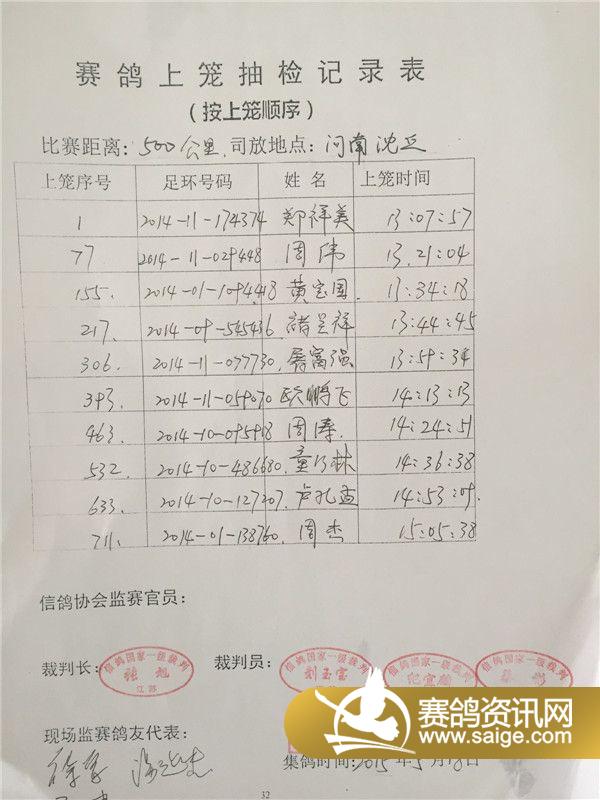 赛鸽上笼抽检记录表
(按上笼顺序)
比赛距离：500公里 司放地点：河南沈丘
上笼序号 足环号码 姓名 上笼时间
1 2014-11-174374 郑祥美 13:07:57
77 2014-11-029448 周伟 13:21:04
155. 2014-01-1094418 黄宝国 13:34:18
217. 2014-09-545436 褚呈祥 13:44:45
306. 2014-11-077730 屠富强 13:59:34
393. 2014-11-059070 欧鹏飞 14:13:13
463. 2014-10-095918 周涛. 14:24:51
532. 2014-10-486680. 童行林 14:36:38
633. 2014-10-127207. 卢孔孟 14:53:09.
711. 2014-01-138760. 周杰 15:05:38
信鸽协会监赛官员：
裁判长： 信鸽国家一级裁判 江苏 裁判员： 信鸽国家一级裁判 刘玉宝 江苏 信鸽国家一级裁判 信鸽国家一级裁判
现场监赛鸽友代表：
集鸽时间：2015年5月18日
32
赛鸽资讯网
www.saige.com